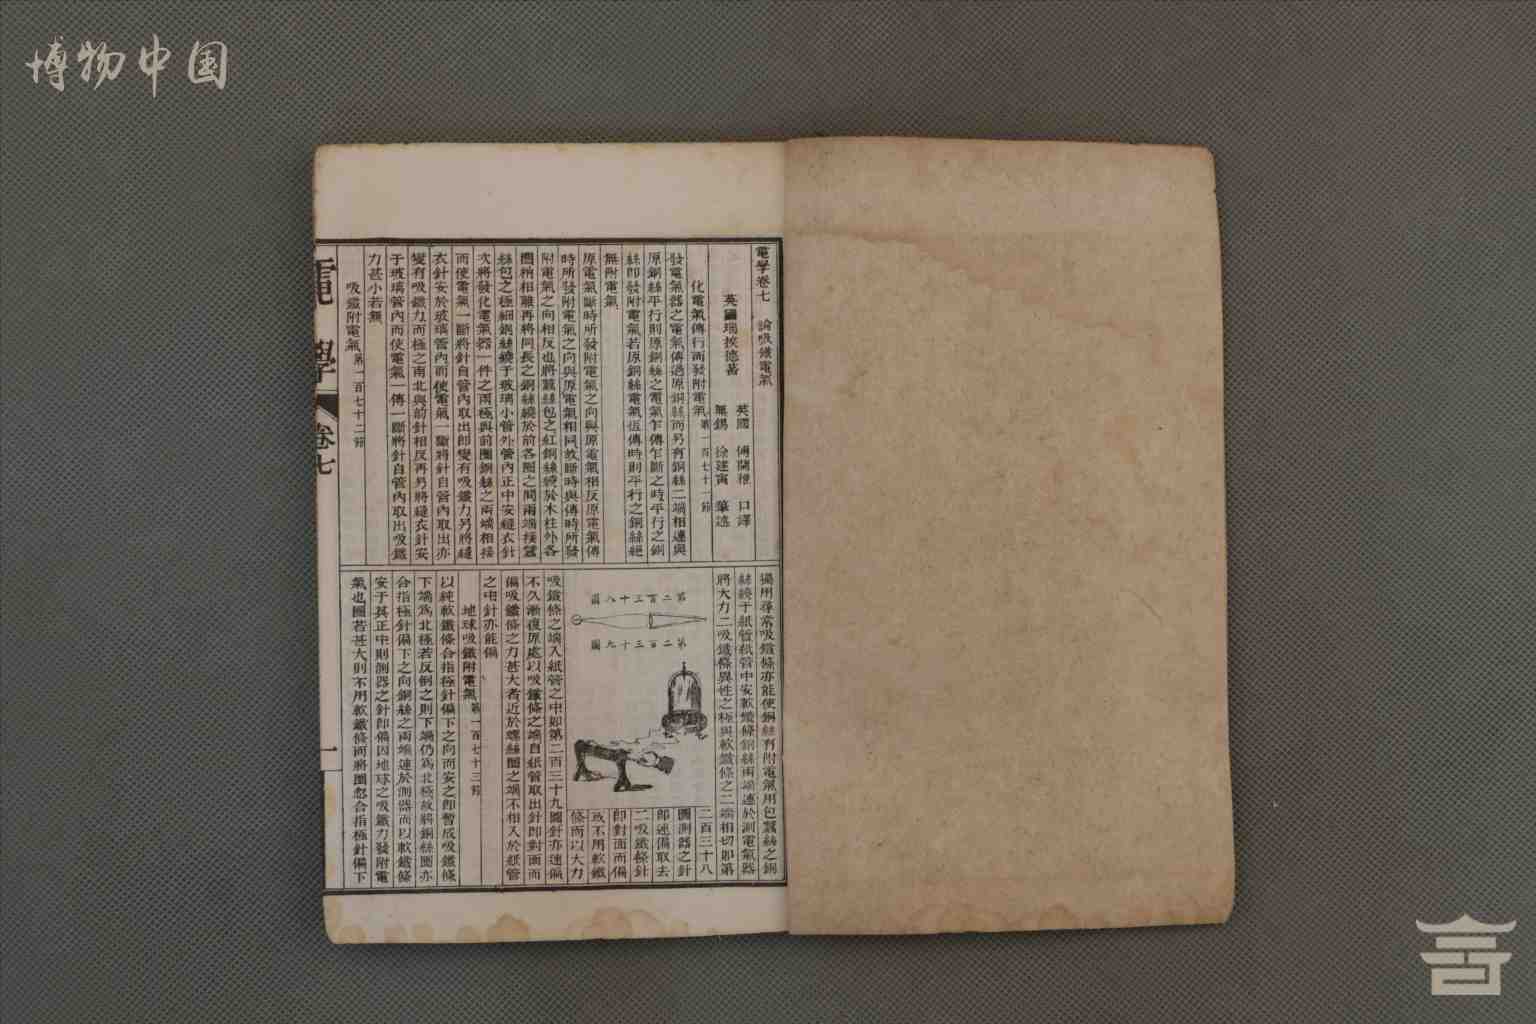 博物中国
電學卷七　論吸鐵電氣
英國瑙挨德著
英國　傅蘭雅　口譯
無錫　徐建寅　筆述
化電氣傳行而發附電氣第一百七十一節
發電氣器之電氣傳過原銅絲而另有銅絲二端相連與
原銅絲平行則原銅絲之電氣乍傳乍斷之時平行之銅
絲即發附電氣若原銅絲電氣恆傳時則平行之銅絲絕
無附電氣
原電氣斷時所發附電氣之向與原電氣相反原電氣傳
時所發附電氣之向與原電氣相同故斷時與傳時所發
附電氣之向相反也將蠶絲包之紅銅絲繞於木柱外各
圈稍相離再將同長之銅絲繞於前各圈之間兩端接蠶
絲包之極細銅絲繞于玻璃小管外管內正中安縫衣針
次將發化電氣器一件之兩極與前圈銅絲之兩端相接
而使電氣一斷將針自管內取出即變有吸鐵力另將縫
衣針安於玻璃管內而使電氣一斷將針自管內取出亦
變有吸鐵力而極之南北與前針相反再另將縫衣針安
于玻璃管內而使電氣一傳一斷將針自管內取出吸鐵
力甚小若無
吸鐵附電氣第一百七十二節
獨用尋常吸鐵條亦能使銅絲有附電氣用包蠶絲之銅
絲繞于紙管紙管中安軟鐵條銅絲兩端連於測電氣器
將大力二吸鐵條異性之極與軟鐵條之二端相切即第
二百三十八
圖測器之針
即速偏取去
二吸鐵條針
即對面而偏
或不用軟鐵
條而以大力
第二百三十八圖
第二百三十九圖
吸鐵條之端入紙管之中如第二百三十九圖針亦速偏
不久漸復原處以吸鐵條之端自紙管取出針即對面而
偏吸鐵條之力甚大者近於螺絲圈之端不相入於紙管
之中針亦能偏
地球吸鐵附電氣第一百七十三節
以純軟鐵條合指極針偏下之向而安之即暫成吸鐵條
下端為北極若反倒之則下端仍為北極故將銅絲圈亦
合指極針偏下之向銅絲之兩端連於測器而以軟鐵條
安于其正中則測器之針即偏因地球之吸鐵力發附電
氣也圈若甚大則不用軟鐵條而將圈忽合指極針偏下
電學
卷七
一